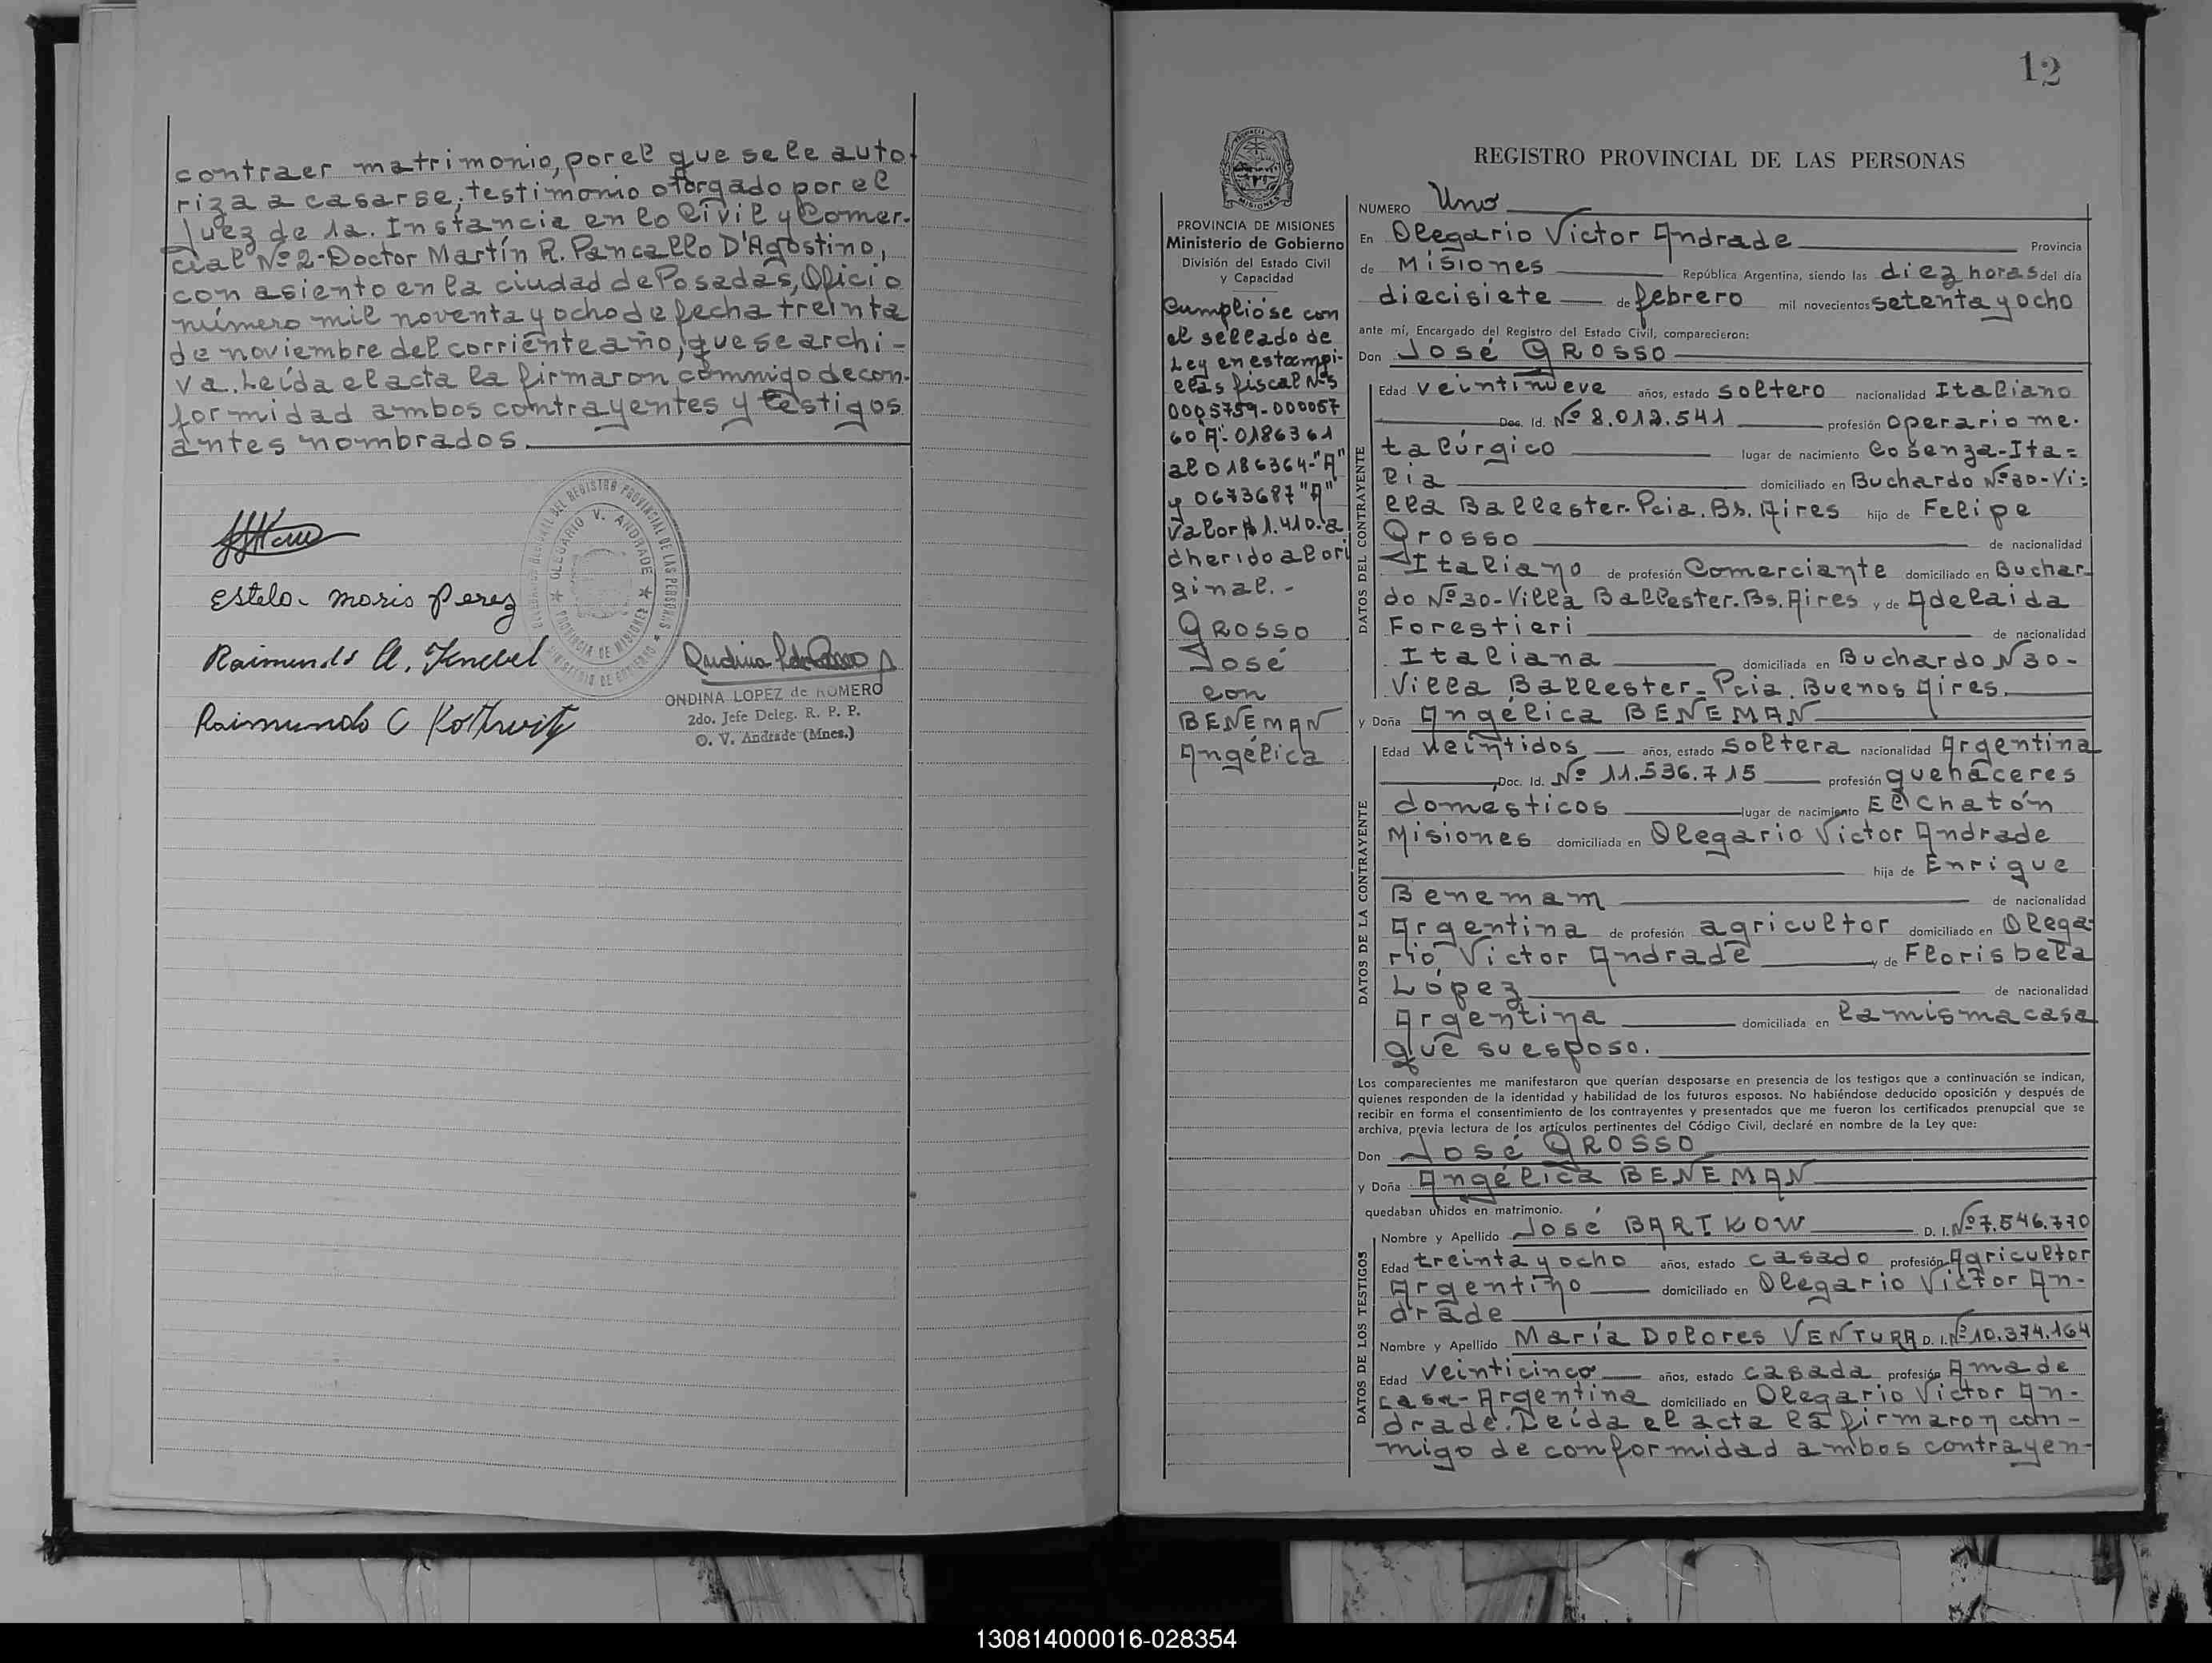 contraer matrimonio, por el que se le auto-
riza a casarse, testimonio otorgado por el
Juez de 1a. Instancia en lo Civil y Comer-
cial Nº 2-Doctor Martín R. Pancallo D'Agostino,
con asiento en la ciudad de Posadas, Oficio
número mil noventa y ocho de fecha treinta
de noviembre del corriente año, que se archi-
va. Leída el acta la firmaron conmigo de con-
formidad ambos contrayentes y testigos
antes nombrados.
Estela. Moris Perez
Raimundo A. Knebel
Raimundo C
ONDINA LOPEZ de ROMERO
2do. Jefe Deleg. R. P. P.
O. V. Andrade (Mnes.)
OLEGARIO V. ANDRADE
PROVINCIA DE MISIONES
12
PROVINCIA DE MISIONES
Ministerio de Gobierno
División del Estado Civil
y Capacidad
Cumplióse con
el sellado de
Ley en estampi-
llas fiscal Nºs
0005759-000057
60"A"-0186361
al 0186364-"A"
y 0673687"A"
Valor $ 1.410-a
dherido al ori
ginal.-
GROSSO
José
con
BENEMAN
Angélica
REGISTRO PROVINCIAL DE LAS PERSONAS
NUMERO Uno
En Olegario Víctor Andrade Provincia
de Misiones República Argentina, siendo las diez horas del día
diecisiete de febrero mil novecientos setenta y ocho
ante mí, Encargado del Registro del Estado Civil, comparecieron:
Don José GROSSO
DATOS DEL CONTRAYENTE
Edad veintinueve años, estado soltero nacionalidad Italiano
Doc. Id. Nº 8.012.541 profesión operario me-
talúrgico lugar de nacimiento Cosenza-Ita=
lia domiciliado en Buchardo Nº 30-Vi=
lla Ballester-Pcia. Bs. Aires hijo de Felipe
Grosso de nacionalidad
Italiano de profesión Comerciante domiciliado en Buchar-
do Nº 30-Villa Ballester.Bs.Aires y de Adelaida
Forestieri de nacionalidad
Italiana domiciliada en Buchardo N 30-
Villa Ballester-Pcia. Buenos Aires.
y Doña Angélica BENEMAN
DATOS DE LA CONTRAYENTE
Edad veintidos años, estado soltera nacionalidad Argentina
Doc. Id. Nº 11.536.715 profesión quehaceres
domésticos lugar de nacimiento El Chatón
Misiones domiciliada en Olegario Víctor Andrade
hija de Enrique
Benemam de nacionalidad
Argentina de profesión agricultor domiciliado en Olega-
rio Víctor Andrade y de Florisbela
López de nacionalidad
Argentina domiciliada en la misma casa
que su esposo.
Los comparecientes me manifestaron que querían desposarse en presencia de los testigos que a continuación se indican,
quienes responden de la identidad y habilidad de los futuros esposos. No habiéndose deducido oposición y después de
recibir en forma el consentimiento de los contrayentes y presentados que me fueron los certificados prenupcial que se
archiva, previa lectura de los artículos pertinentes del Código Civil, declaré en nombre de la Ley que:
Don José GROSSO
y Doña Angélica BENEMAN
quedaban unidos en matrimonio.
DATOS DE LOS TESTIGOS
Nombre y Apellido José BARTKOW D. I. Nº 7.546.770
Edad treinta y ocho años, estado casado profesión Agricultor
Argentino domiciliado en Olegario Víctor An-
drade
Nombre y Apellido María Dolores VENTURA D. I. Nº 10.374.164
Edad veinticinco años, estado casada profesión Ama de
casa-Argentina domiciliado en Olegario Víctor An-
drade. Leída el acta la firmaron con-
migo de conformidad ambos contrayen-
130814000016-028354